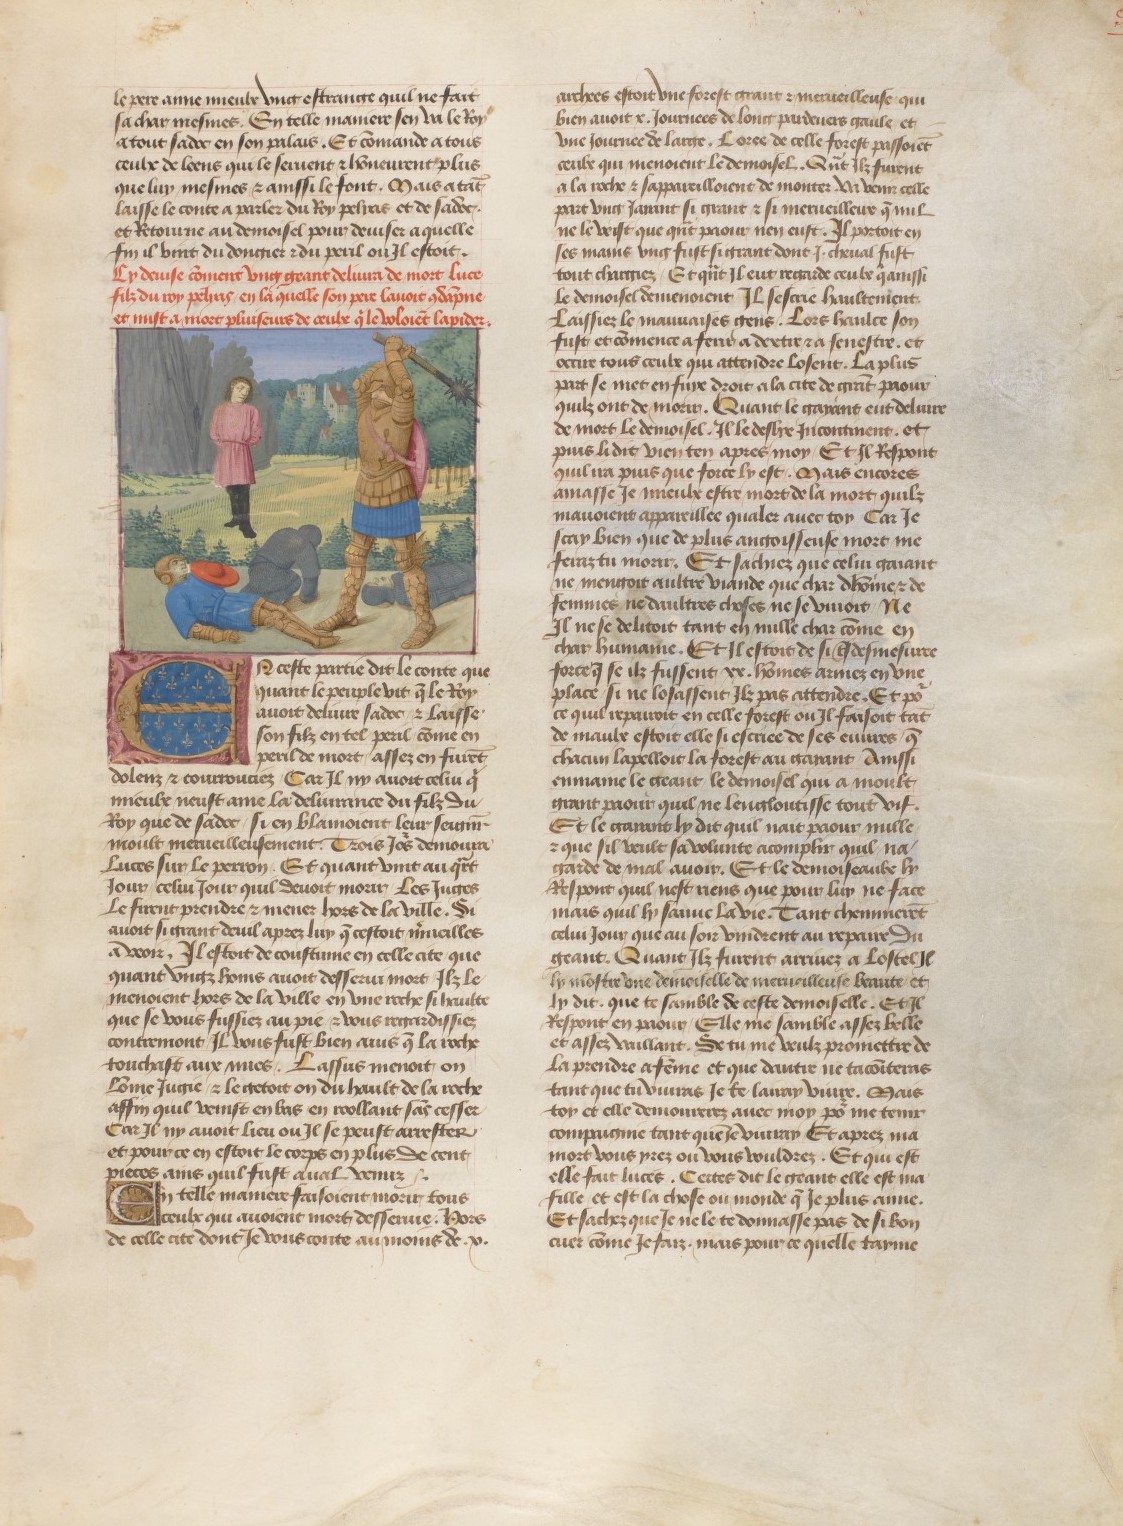 le pere aime mieulx vng estrange quil ne fait
sa char mesmes. En telle maniere sen va le Roy
a tout sadoc en son palais. Et cōmande a tous
ceulx de leens qui le seruent & hōneurent plus
que luy mesmes & aussi le font. Mais a tāt
laisse le conte a parler du Roy pelyas et de sadoc.
et Retourne au demoisel pour deuiser a quelle
fin il vint du dongier & du peril ou Il estoit.
Cy deuise cōment vng geant deliura de mort luce
filz du roy pelyas en la quelle son pere lauoit 9dāpne
et mist a mort pluiseurs de ceulx q̄ le voloiēt lapider.
En ceste partie dit le conte que
quant le peuple vit q̄ le Roy
auoit deliure sadoc & laisse
son filz en tel peril cōme en
peril de mort assez en furēt
dolenz & courrouciez Car Il ny auoit celui q̄
mieulx neust ame la deliurance du filz du
Roy que de sadoc si en blamoient leur seignr̄
moult merueilleusement. Trois Jo͛s demoura
Luces sur le perron. Et quant vint au q̄rt
Jour celui Jour quil deuoit morir Les Juges
le firent prendre & mener hors de la ville. Si
auoit si grant deuil aprez luy q̄ cestoit m̄ueilles
a veoir. Il estoit de coustume en celle cite que
quant vngz homs auoit desserui mort Ilz le
menoient hors de la ville en vne roche si haulte
que se vous fussiez au pie & vous regardissiez
contremont Il vous fust bien auis q̄ la roche
touchast aux nues. Lassus menoit on
lōme Jugie & le getoit on du hault de la roche
affin quil venist en bas en roollant sās cesser
Car Il ny auoit lieu ou Il se peust arrester
et pour ce en estoit le corps en plus de cent
pieces ains quil fust aual venuz.
En telle maniere faisoient morir tous
ceulx qui auoient mort desseruie. Hors
de celle cite dont Je vous conte au moins de .v.
archees estoit vne forest grant & merueilleuse qui
bien auoit x. Journees de long par deuers gaule et
vne Journee de large. Lores de celle forest passoiēt
ceulx qui menoient le demoisel. Qūt Ilz furent
a la roche & sappareilloient de monter Va venir celle
part vng Jaiant si grant & si merueilleux q̄ nul
ne le veist que qūt paour nen eust. Il portoit en
ses mains vng fust si grant dont .J. cheual fust
tout chargiez Et qūt Il eut regarde ceulx q̄ aussi
le demoisel demenoient Il sescrie haultement.
Laissiez le mauuaises gens. Lors haulce son
fust et cōmence a ferir a dextre & a senestre. et
occire tous ceulx qui attendre losent. La plus
part se met en fuye droit a la cite de grāt paour
quilz ont de morir. Quant le gayant eut deliure
de mort le demoisel. Il le deslye Incontinent. et
puis li dit vien ten apres moy Et Il Respont
quil ira puis que force ly est. Mais encores
amasse Je mieulx estre mort de la mort quilz
mauoient appareillee qualer auec toy Car Je
scay bien que de plus angoisseuse mort me
feras tu morir. Et sachiez que celui gaiant
ne mengoit aultre viande que char dhōme & de
femmes ne daultres choses ne se viuoit Ne
Il ne se delitoit tant en nulle char cōme en
char humaine. Et Il estoit de si desmesuree
force q̄ se ilz fussent xx. hōmes armez en vne
place si ne losassent Ilz pas attendre. Et po͛
ce quil repairoit en celle forest ou Il faisoit tāt
de maulx estoit elle si escriee de ses euures q̄
chacun lapelloit la forest au gaiant Aussi
enmaine le geant le demoisel qui a moult
grant paour quil ne lengloutisse tout vif.
Et le gaiant ly dit quil nait paour nulle
& que sil veult sa volunte acomplir quil na
garde de mal auoir. Et le demoiseaulx ly
Respont quil nest riens que pour luy ne face
mais quil ly sauue la vie. Tant cheminerēt
celui Jour que au soir vindrent au repaire du
geant. Quant Ilz furent arriuez a lostel Il
ly mōstre vne demoiselle de merueilleuse beaute et
ly dit. que te samble de ceste demoiselle. Et Il
Respont en paour Elle me samble assez belle
et assez vaillant. Se tu me veulz promettre de
la prendre a fēme et que dautre ne tacōiteras
tant que tu viuras Je te lairay viure. Mais
toy et elle demourerez auec moy po͛ me tenir
compaignie tant que Je viuray Et aprez ma
mort vous yrez ou vous vouldrez. Et qui est
elle fait luces. Certes dit le geant elle est ma
fille et est la chose ou monde q̄ Je plus aime.
Et sachez que Je ne le te donnasse pas de si bon
cuer cōme Je faiz. mais pour ce quelle tayme